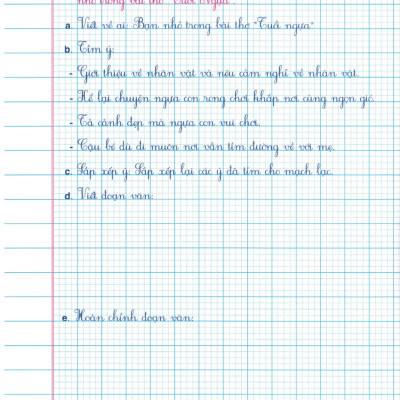 nhỏ trong bài thơ "Tuổi Ngựa".
a. Viết về ai: Bạn nhỏ trong bài thơ "Tuổi ngựa"
b. Tìm ý:
- Giới thiệu về nhân vật và nêu cảm nghĩ về nhân vật.
- Kể lại chuyện ngựa con rong chơi khắp nơi cùng ngọn gió.
- Tả cảnh đẹp mà ngựa con vui chơi.
- Cậu bé dù đi muôn nơi vẫn tìm đường về với mẹ.
c. Sắp xếp ý: Sắp xếp lại các ý đã tìm cho mạch lạc.
d. Viết đoạn văn:
e. Hoàn chỉnh đoạn văn: